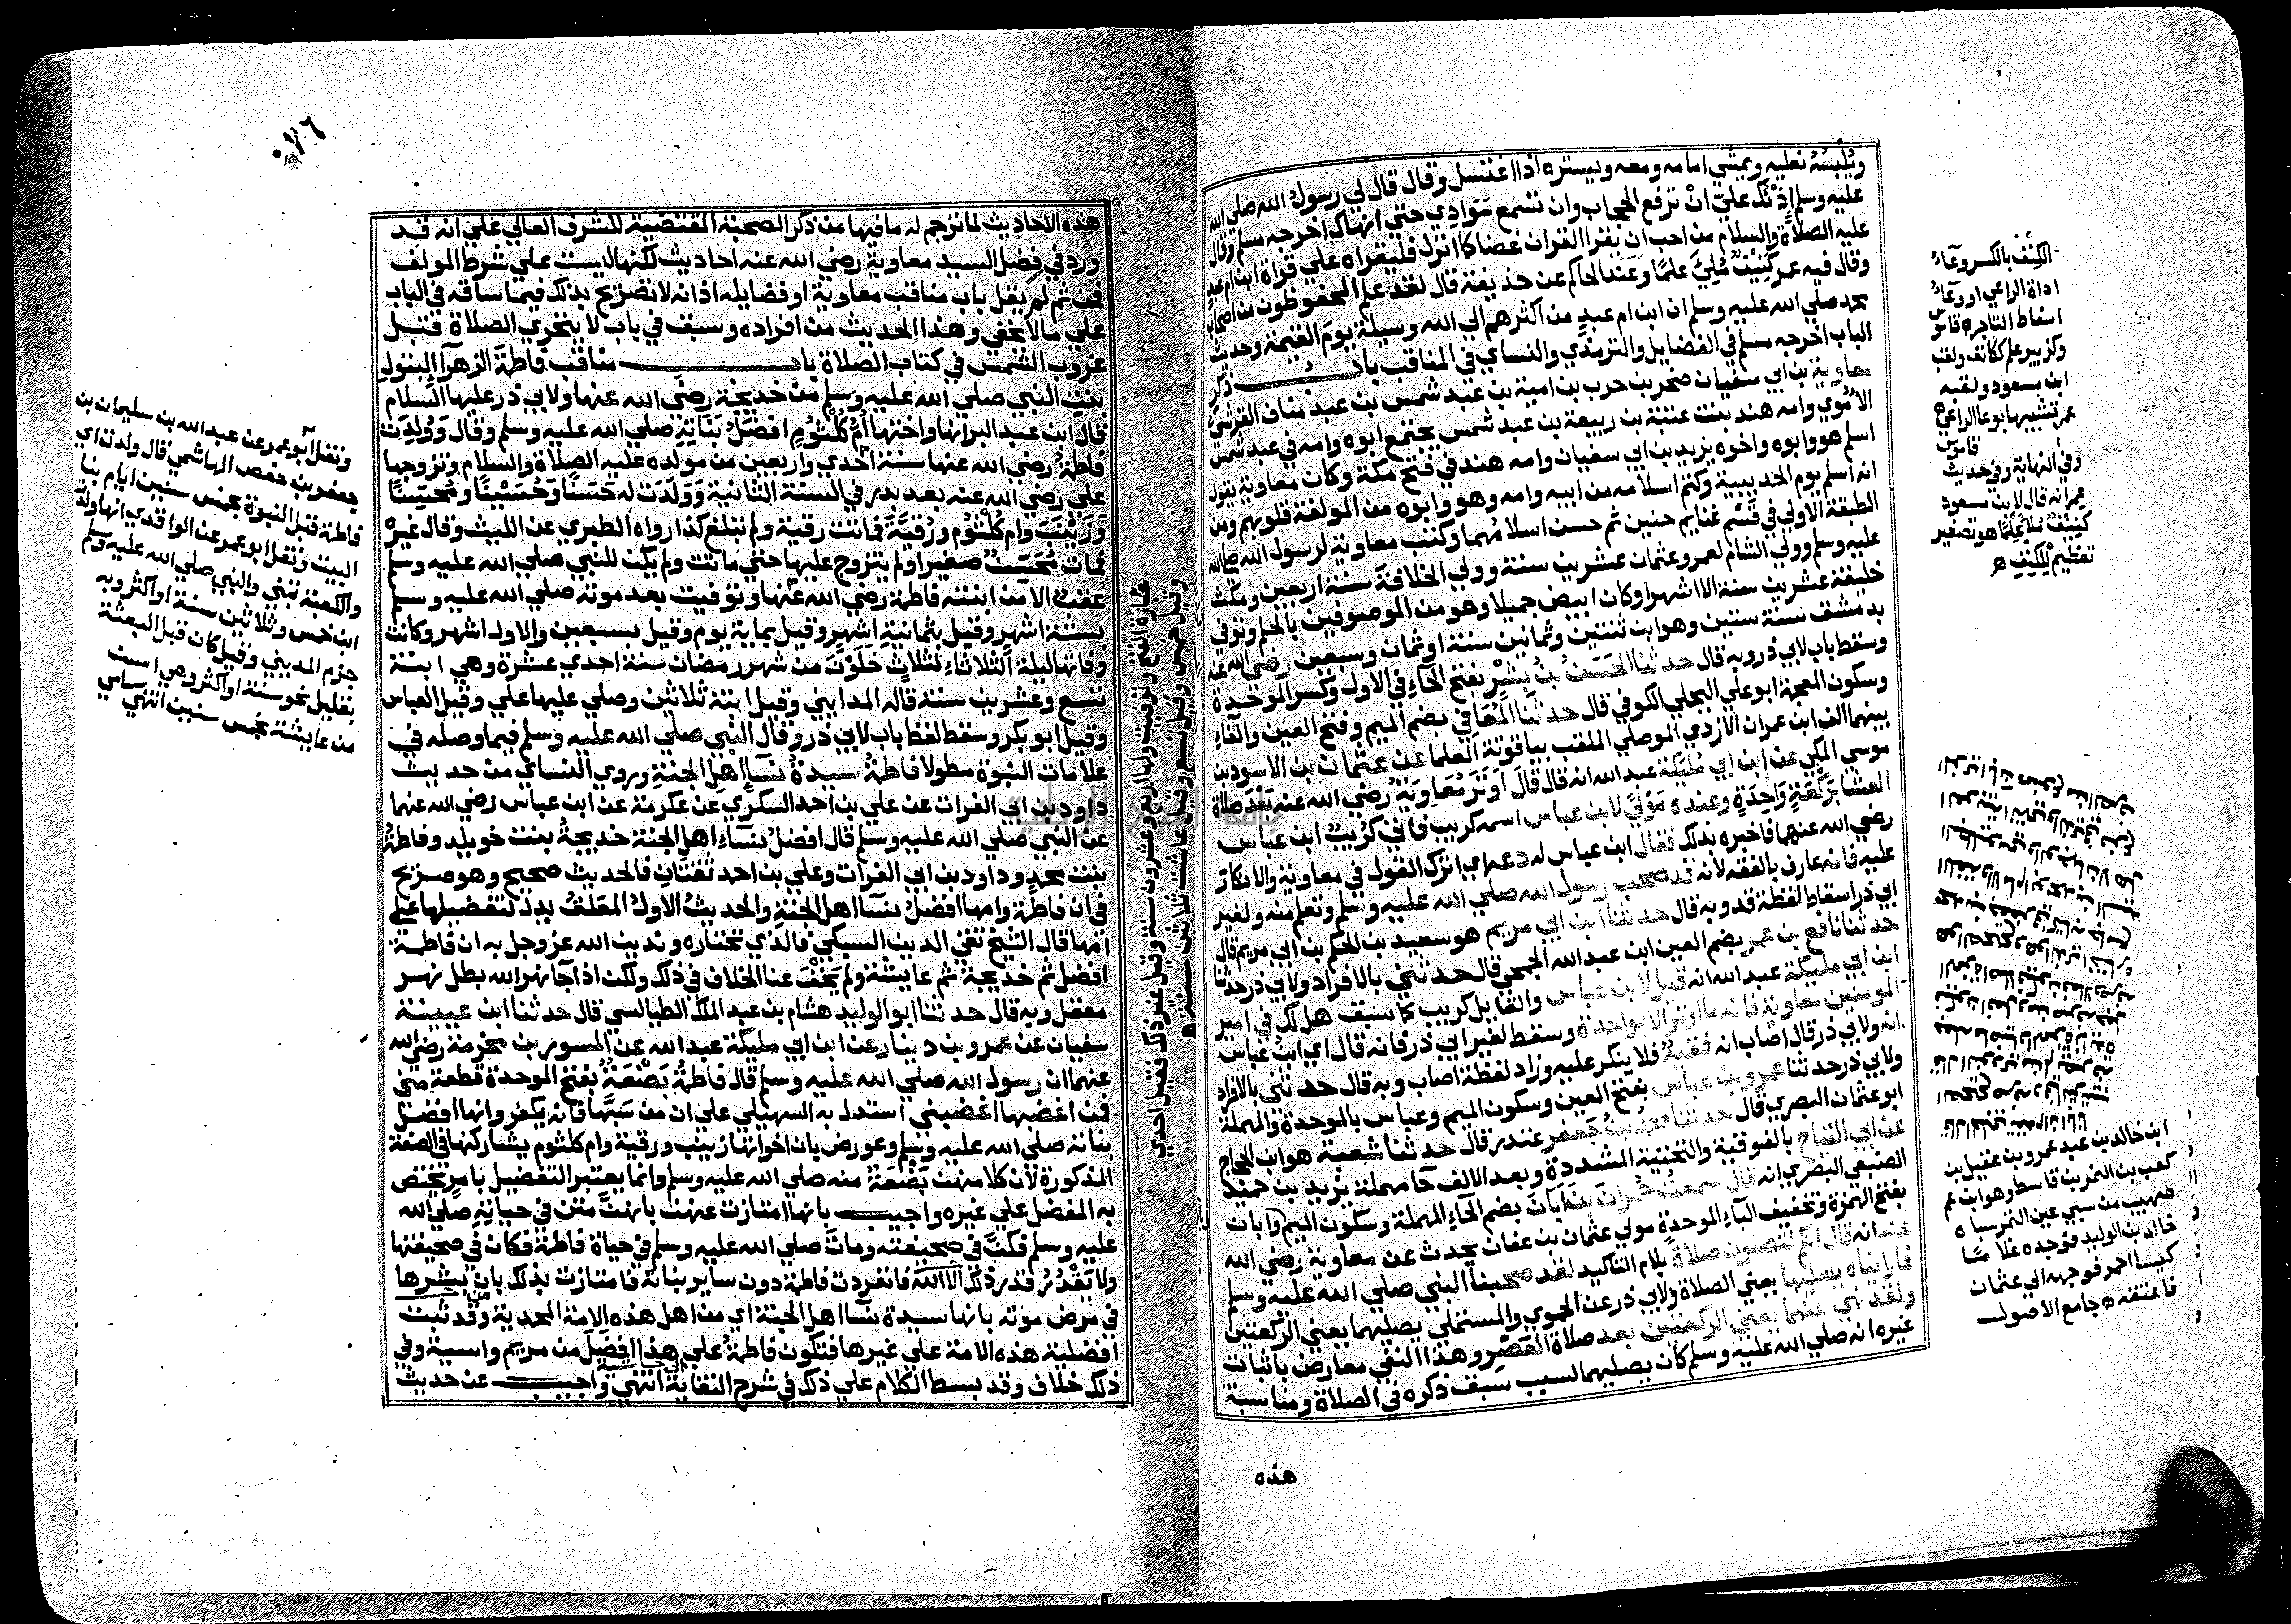 ويُلبسُهُ نعليه ويمشي امامه ومعه ويستره اذا اغتسل وقال قال لي رسول الله صلي الله
عليه وسلم اذنك عليّ انْ ترفع الحجاب وان تسمع سَوَادِي حتي انهاك اخرجه مسلم وقال
عليه الصلاة والسلام من احب ان يقرا القران غضا كما انزل فليقراه علي قراة ابن ام عبد
وقال فيه عمر كُنَيْفٌ مُلِيَّ علمًا وعند الحاكم عن حذيفة قال لقد علم المحفوظون من اصحاب
محمد صلي الله عليه وسلم ان ابن ام عبد من اكثرهم الي الله وسيلة يوم القيمة وحديث
الباب اخرجه مسلم في الفضايل والترمذي والنساي في المناقب باب ذكر
معاوية بن ابي سفيان صخر بن حرب بن امية بن عبد شمس بن عبد مناف القرشيّ
الاموي وامه هند بنت عتبة بن ربيعة بن عبد شمس يجتمع ابوه وامه في عبد شمس
اسلم هو وابوه واخوه يزيد بن ابي سفيان وامه هند في فتح مكة وكان معاوية يقول
انه اسلم يوم الحديبية وكتم اسلامه من ابيه وامه وهو وابوه من المولفة قلوبهم ومن
الطبقة الاولي في قَسْمِ غنايم حنين ثم حسن اسلامُهما وكتب معاوية لرسول الله صلي الله
عليه وسلم وولي الشام لعمر وعثمان عشرين سنة وولي الخلافة سنة اربعين ومكث
خليفة عشرين سنة الا اشهرا وكان ابيض جميلا وهو من الموصوفين بالحلم وتوفي
بدمشق سنة ستين وهو ابن ثنتين وثمانين سنة او ثمان وسبعين رضي الله عنه
وسقط باب لابي ذر وبه قال حدثنا الحَسَنُ بْنُ بِشْرٍ بفتح الحاء في الاول وكسر الموحدة
وسكون المعجمة ابو علي البجلي الكوفي قال حدثنا المُعَافي بضم الميم وفتح العين والفاء
بينهما الف ابن عمران الازدي الموصلي الملقب بياقوتة العلما عن عثمان بن الاسود بن
موسي المكي عن ابن ابي مليكة عبد الله انه قال قال اَوْتَرَ مُعَاوِيَةُ رضي الله عنه بَعْدَ صلاة
العشا بِرَكْعَةٍ وَاحِدَةٍ وعنده مَوْلًي لابن عباس اسمه كريب فاتي كُرَيْبٌ ابن عباس
رضي الله عنهما فاخبره بذلك فقال ابن عباس له دعه اي اترك القول في معاوية والانكار
عليه فانه عارف بالفقه لانه قد صحب رسول الله صلي الله عليه وسلم وتعلم منه ولغير
ابي ذر اسقاط لفظة قد وبه قال حدثنا ابن ابي مريم هو سعيد بن الحكم بن ابي مريم قال
حدثنا نافع بن عمر بضم العين ابن عبد الله الجمحي قال حدثني بالافراد ولابي ذر حدثنا
ابن ابي مليكة عبد الله انه قيل لابن عباس والقايل كريب كما سبق هل لك في امير
المومنين معاوية فانه ما اوتر الا بواحدة وسقط لغير ابي ذر فانه قال اي ابن عباس
انه ولابي ذر قال اصاب انه فَقِيهٌ فلا ينكر عليه وزاد لفظة اصاب وبه قال حدثني بالافراد
ولابي ذر حدثنا عمرو بن عباس بفتح العين وسكون الميم وعباس بالموحدة والمهملة
ابو عثمان البصري قال حدثنا محمد بن جعفر غندر قال حدثنا شعبة هو ابن الحجاج
عن ابي التياح بالفوقية والتحتية المشددة وبعد الالف حا مهملة يزيد بن حميد
الضبعي البصري انه قال سمعتُ حُمْرَانَ بْنَ اَبَانَ بضم الحاء المهملة وسكون الميم وابان
بفتح الهمزة وتخفيف الباء الموحدة مولي عثمان بن عفان يحدث عن معاوية رضي الله
عنه انه قال انكم لتصلون صلاةً بلام التاكيد لقد صحبنا النبي صلي الله عليه وسلم
فما رايناه يصليها يعني الصلاة ولابي ذر عن الحموي والمستملي يصليهما يعني الركعتين
ولقد نهي عنهما يعني الركعتين بعد صلاة العَصْرِ وهذا النفي معارض باثبات
غيره انه صلي الله عليه وسلم كان يصليهما لسبب سبق ذكره في الصلاة ومناسبة
هذه
الكِنْف بالكسر وعَاءُ
اداة الراعي او وِعَاءُ
اسقاط التاجر ه قاموس
وكزبير علم ككانف ولقب
ابن مسعود ولقبه
عمر تشبيها بوعا الراعي ه
قاموس
وفي النهاية وفي حديث
عمر انه قال لابن مسعود
كُنَيْفٌ مُلِيَ عِلْمًا هو تصغير
تعظيم لِلكِنْفِ ه
ابن خالد بن عبد عمرو بن عقيل بن
كعب بن النمر بن قاسط وهو ابن عم
صهيب من سبي عين التمر سباه
خالد بن الوليد فوجده غلامًا
كيسا احمر فوجهه الي عثمان
فاعتقه ه جامع الاصول
٠٧٦
هذه الاحاديث لما ترجم له ما فيها من ذكر الصحبة المقتضية للشرف العالي علي انه قد
ورد في فضل السيد معاوية رضي الله عنه احاديث لكنها ليست علي شرط المولف
فمن ثم لم يقل باب مناقب معاوية او فضايله اذ انه لا تصريح بذلك فيما ساقه في الباب
علي ما لا يخفي وهذا الحديث من افراده وسبق في باب لا يتحري الصلاة قبل
غروب الشمس في كتاب الصلاة باب مناقب فاطمة الزهرآ البتول
بنتِ النبي صلي الله عليه وسلم من خديجة رضي الله عنها ولابي ذر عليها السلام
قال ابن عبد البر انها واختها اُمَّ كُلثُومٍ افضلُ بَنَاتِهِ صلي الله عليه وسلم وقال وَوُلِدَت
فاطمة رضي الله عنها سنة احدي واربعين من مولده عليه الصلاة والسلام وتزوجها
علي رضي الله عنه بعد بدر في السنة الثانية وَوَلَدَت له حَسَنًا وَحُسَيْنًا ومُحَسِّنًا
وَزَيْنَبَ وام كُلْثُوم ورُقَيَّةَ فماتت رقية ولم تبلغ كذا رواه الطبري عن الليث وقال غيره
فمات مُحَسِّنٌ صغيرا ولم يتزوج عليها حتي ماتت ولم يكن للنبي صلي الله عليه وسلم
عقب الا من ابنته فاطمة رضي الله عنها وتوفيت بعد موته صلي الله عليه وسلم
بستة اشهر وقيل بثمانية اشهر وقيل بماية يوم وقيل بسبعين والاول اشهر وكانت
وفاتها ليلة الثلاثاء لثلاثٍ خَلَوْنَ من شهر رمضان سنة احدي عشرة وهي ابنة
تسع وعشرين سنة قاله المدايني وقيل ابنة ثلاثين وصلي عليها علي وقيل العباس
وقيل ابو بكر وسقط لفظ باب لابي ذر وقال النبي صلي الله عليه وسلم فيما وصله في
علامات النبوة مطولا فاطمة سيدة نسآء اهل الجنةِ وروي النساي من حديث
داود بن ابي الفرات عن علي بن احمد السكري عن عكرمة عن ابن عباس رضي الله عنهما
عن النبي صلي الله عليه وسلم قال افضلُ نساءِ اهلِ الجنة خديجةُ بنت خويلد وفاطمةُ
بنت محمدٍ وداود بن ابي الفرات وعلي بن احمد ثقتان فالحديث صحيح وهو صريح
في ان فاطمة وامها افضلُ نسآءِ اهل الجنةِ والحديث الاول المعلقُ يدل لتفضيلها علي
امها قال الشيخ تقي الدين السبكي فالذي نختاره وندين الله عز وجل به ان فاطمة
افضل ثم خديجة ثم عايشة ولم يَخْفَ عنا الخلاف في ذلك ولكن اذا جآء نهر الله بطل نهر
معقل وبه قال حدثنا ابو الوليد هشام بن عبد الملك الطيالسي قال حدثنا ابن عيينة
سفيان عن عمرو بن دينار عن ابن ابي مليكة عبد الله عن المسور بن مخرمة رضي الله
عنهما ان رسول الله صلي الله عليه وسلم قال فاطمةُ بَضْعَةٌ بفتح الموحدة قطعة مني
فمن اغضبها اغضبني استدل به السهيلي علي ان من سَبَّهَا فانه يكفر وانها افضل
بناته صلي الله عليه وسلم وعورض بان اخواتها زينب ورقية وام كلثوم يشاركنها في الصفة
المذكورة لان كلا منهن بَضْعَةٌ منه صلي الله عليه وسلم وانما يعتبر التفضيل بامرٍ يختص
به المفضل علي غيره واجيب بانها امتازت عنهن بانهنّ متن في حياتِهِ صلي الله
عليه وسلم فكنَّ في صحيفته وماتَ صلي الله عليه وسلم في حياة فاطمة فكان في صحيفتها
ولا يَقْدُرُ قدر ذلك الا الله فانفردت فاطمة دون ساير بناته فامتازت بذلك بان بشرها
في مرض موته بانها سيدة نسآء اهل الجنة اي من اهل هذه الامة المحمدية وقد ثبت
افضلية هذه الامة علي غيرها فتكون فاطمةُ علي هذا افضل من مريم واسية وفي
ذلك خلاف وقد بسط الكلام علي ذلك في شرح النقاية انتهي واجيب عن حديث
ونقل ابو عمر عن عبد الله بن سليمان بن
جعفر بن حفص الهاشمي قال ولدت اي
فاطمة قبل النبوة بخمس سنين ايام بنا
البيت ونقل ابو عمر عن الواقدي انها ولدت
والكعبة تبني والنبي صلي الله عليه وسلم
ابن خمس وثلاثين سنة او اكثر وبه
جزم المديني وقيل كان قبل البعثة
بقليل نحو سنة او اكثر وهي اسن
من عايشة بخمس سنين انتهي سامي
عبارة الفتح وتوفيت ولها اربع وعشرون سنة وقيل غير ذلك فقيل احدي
وقيل خمس وقيل تسع وقيل عاشت ثلاثين سنة ه